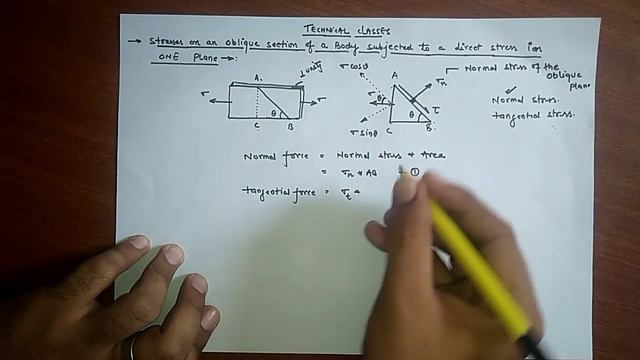 TECHNICAL CLASSES
→ Stresses on an oblique section of a Body subjected to a direct stress in
ONE Plane →:
unity
A
σ
σ
θ
C
B
σcosθ
A
σn
Normal stress of the
oblique
plane
θ
θ
C
B
σsinθ
Normal stress.
tangential stress.
Normal force = Normal stress * Area
= σn * AB - ①
tangential force = σt *